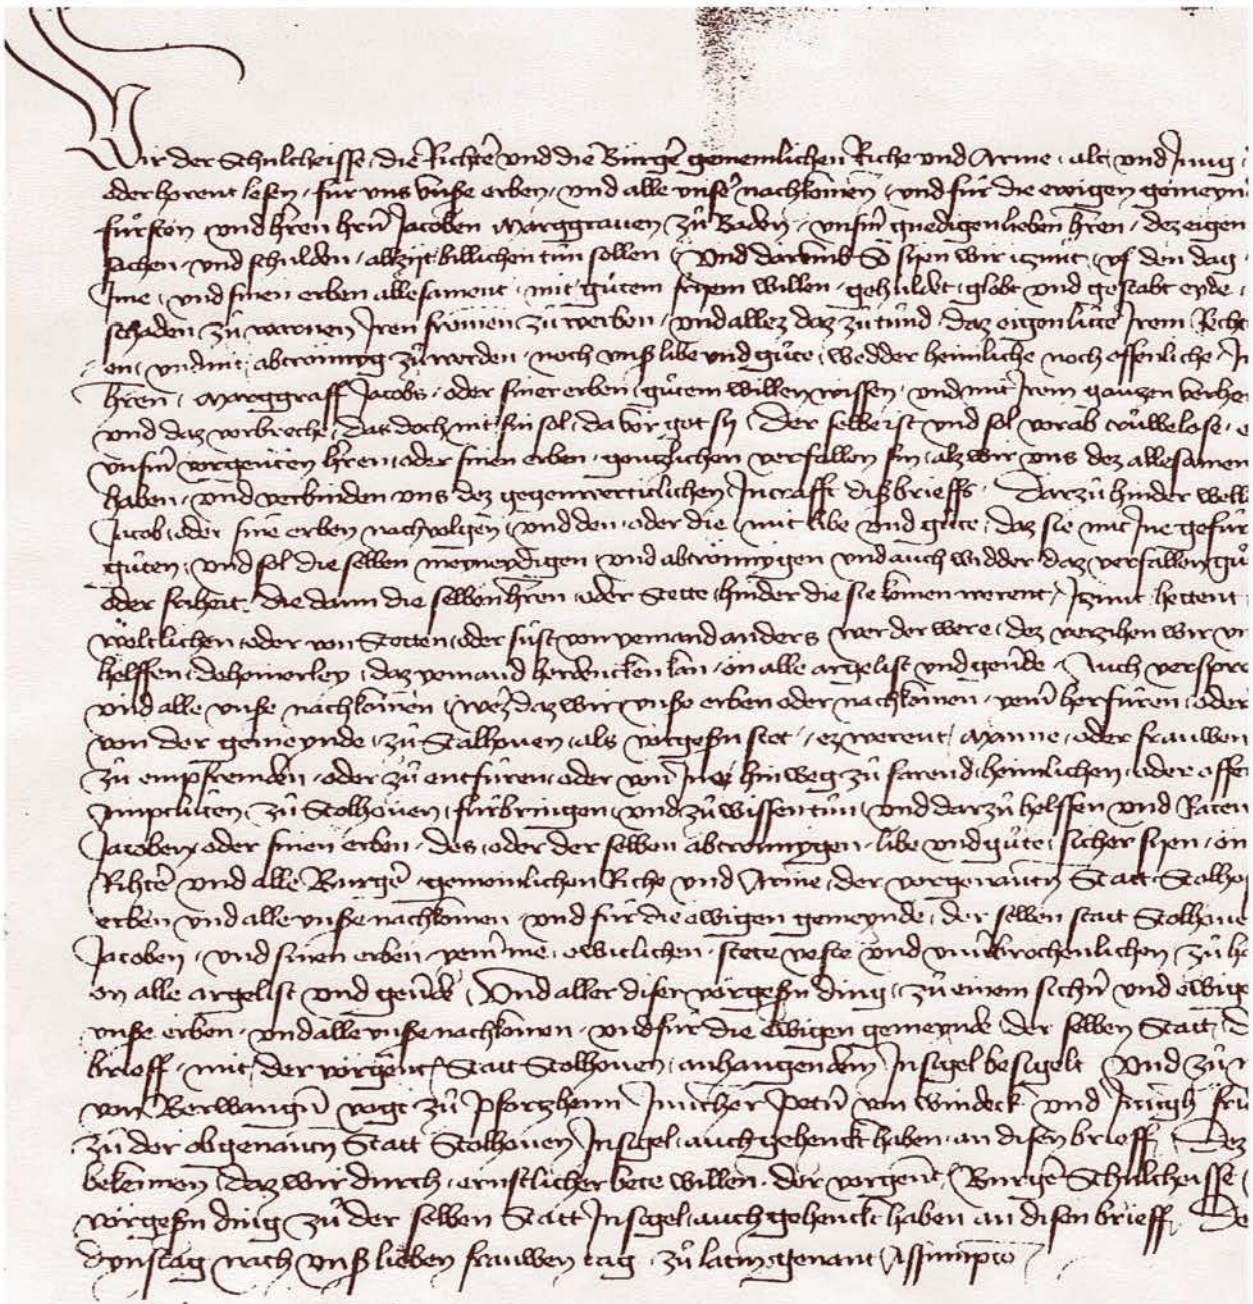 Wir der Schultheisse, die Richtere und die Burgere gemeinlichen Riche und Arme, alt und Jung
oder horent lesen, für uns unße erben, und alle unser nachkomen, und für die ewigen gemeyn
fürsten und hren hrn Jacoben Marggraven zů Baden, unsm gnedigen lieben hren, dez eigen
sachen, und schulden, allzijt billichen tün sollen, Und darumb So syen wir itzunt, uf den dag
Ime, und sinen erben allesament, mit gůtem fryem willen, gehuldet, globt und gestabt eyde
schaden zů warnen Iren fromen zů werben, und allez daz zů tünd, daz eigen lüte Irem Rechte
en, und nit abtrönnyg zů werden, noch unß libe und gůte, wedder heimliche noch offenliche, In
hren, Marggraff Jacobs, oder siner erben, gůtem willen wissen, und mit Irem gantzen verhe
und daz verbreche, das doch nit sin sol, da vor got sy, Der selbe ist und sol vorab trüwelose, e
unsm vorgenten hren, oder sinen erben, gentzlichen verfallen sin, alz wir uns dez allesamen
haben, und verbinden uns dez gegenwerticlichen, In crafft diß brieffs, Darzů hinder well
Jacob, oder sine erben nachvolgen, und den, oder die, mit libe und gůte, daz sie mit Ine gefür
gůten, und sol die selben meyneydigen und abtrönnygen und auch widder daz verfallen gů
oder friheit, die dann die selben hren, oder Stette, hinder die sie komen werent, Itzunt hettent
weltlichen, oder von Stetten, oder süst von yemand anders, wer der were, dez verzihen wir un
helffen, deheinerley, daz yemand herdencken kan, on alle argelist und geverde, Auch verspre
und alle unße nachkomen, wer daz wir unße erben oder nachkomen, yem herfüren, oder
von der gemeynde, zů Stalhoven, als vorgeschn stet, ez werent, Manne, oder frauwen
zů empfremden, oder zů entfüren, oder von Ine hinweg zů farend, heimlichen, oder offen
Amptlüten, zů Stolhoven, fürbringen, und zů wissen tün, und darzů helffen und Raten
Jacoben, oder sinen erben, des, oder der selben abtrönnygen, libe und gůte, sicher syen, on
Rihtere und alle Burgere, gemeinlichen Riche und Arme, der vorgenanten Statt Stolho
erben und alle unße nachkomen, und für die ewigen gemeynde, der selben statt Stolhove
Jacoben, und sinen erben, yemer me, ewiclichen, stete veste und unverbrochenlichen, zů ha
on alle argelist und geverde, Und aller diser vorgeschn ding, zů einem sichern und ewige
unße erben, und alle unße nachkomen, und für die ewigen gemeynde, der selben Statt, d
brieff, mit, der vorgent Statt Stolhoven, anhangendem Insigel besigelt, Und zů
von Berwangen vogt zů Pfortzheim, Juncher Petern von Windeck und
zů der obgenanten Statt Stolhoven Insigel, auch gehenckt haben, an disen brieff, Dez
bekennen, daz wir durch, ernstlicher bete willen, der vorgent, Burgere Schultheisse
vorgeschn ding zů der selben Statt Insigel, auch gehenckt haben an disen brieff, De
dynstag nach unß lieben frauwen tag, zů latin genant Assumptio